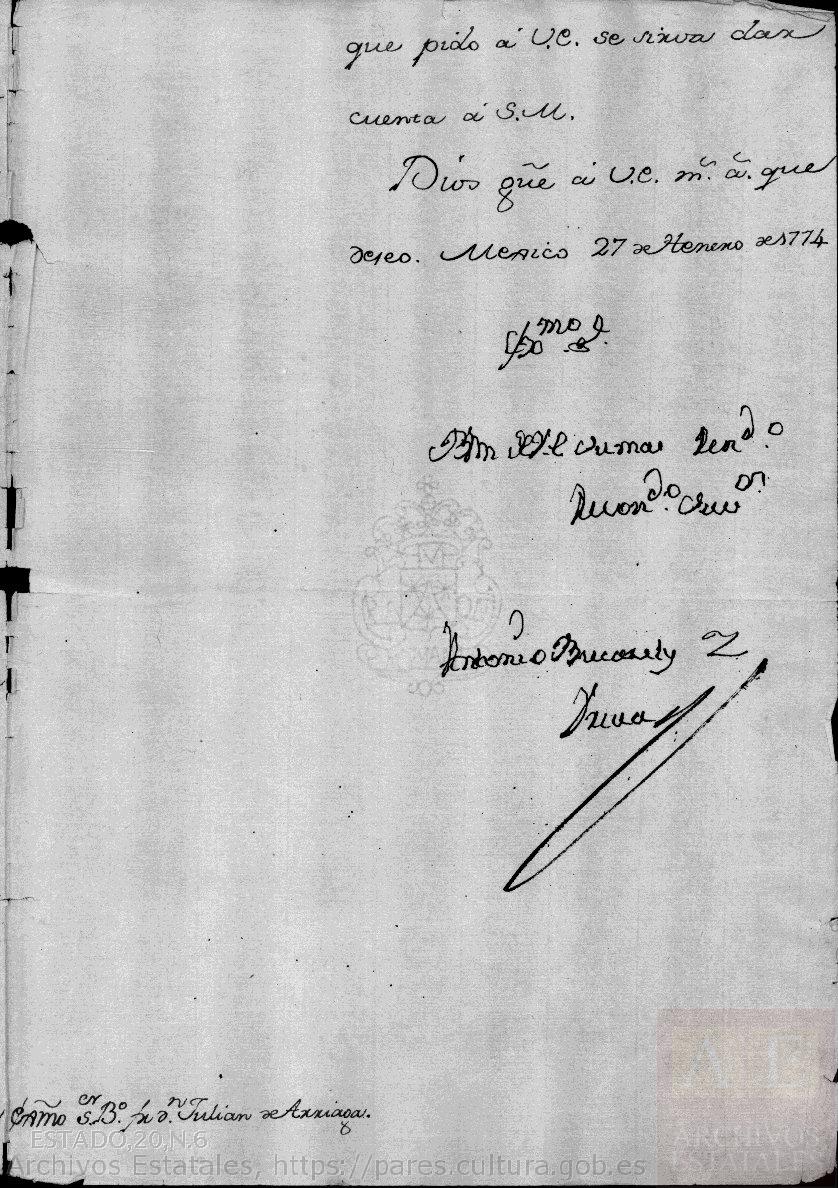 que pido á V.E. se sirva dar
cuenta á S.M.
Dios gũe á V.E. m.ˢ a.ˢ que
deseo. Mexico 27 de Henero de 1774
Exmo S.
BLM de V.E. su mas
Antonio Bucarely y
Ursua
Exmõ S.ᵒʳ B.ᵒ fr. d.ⁿ Julian de Arriaga.
ESTADO,20,N.6
Archivos Estatales, https://pares.cultura.gob.es
AE
ARCHIVOS
ESTATALES